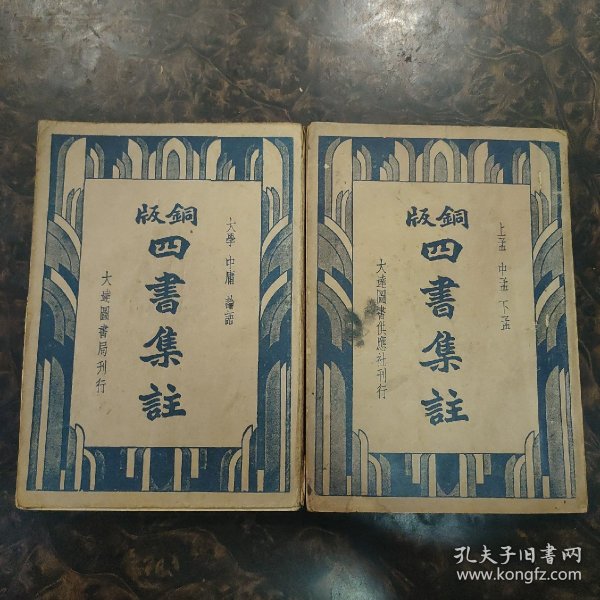 大學 中庸 論語
銅版
四書集註
大達圖書局刊行
上孟 中孟 下孟
銅版
四書集註
大達圖書供應社刊行
孔夫子旧书网
www.kongfz.com